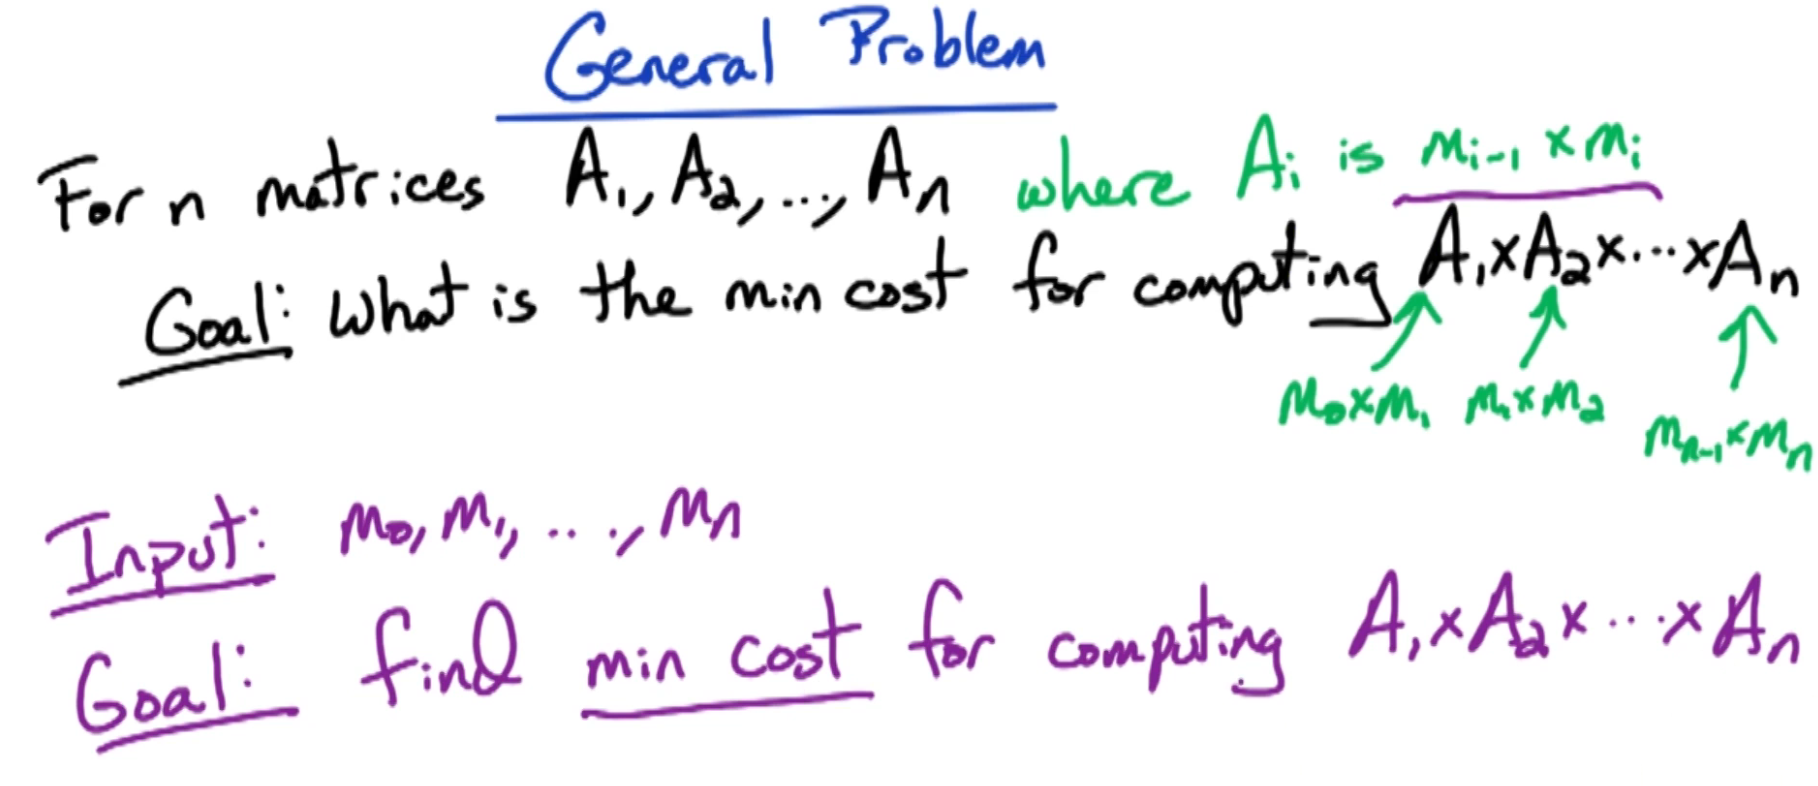 General Problem
For n matrices A₁, A₂, ..., Aₙ where Aᵢ is mᵢ₋₁ × mᵢ
Goal: What is the min cost for computing A₁×A₂×...×Aₙ
m₀×m₁ m₁×m₂ mₙ₋₁×mₙ
Input: m₀, m₁, ..., mₙ
Goal: find min cost for computing A₁×A₂×...×Aₙ